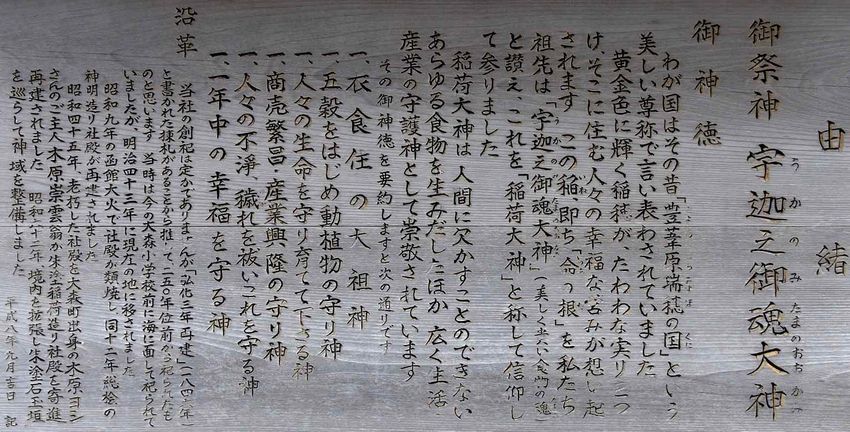 由緒
御祭神 宇迦之御魂大神
うかのみたまのおおかみ
御神徳
わが国はその昔「豊葦原瑞穂の国」という
美しい尊称で言い表わされていました
黄金色に輝く稲穂が、たわわな実りをつ
け、そこに住む人々の幸福な営みが想い起
されます この稲、即ち「命の根」を私たち
祖先は「宇迦之御魂大神」
と讃え、これを「稲荷大神」と称して信仰し
て参りました
稲荷大神は人間に欠かすことのできない
あらゆる食物を生みだしたほか 広く生活
産業の守護神として崇敬されています
その御神徳を要約しますと次の通りです
一、衣食住の大祖神
一、五穀をはじめ動植物の守り神
一、人々の生命を守り育てて下さる神
一、商売繁昌・産業興隆の守り神
一、人々の不淨、穢れを祓いこれを守る神
一、一年中の幸福を守る神
沿革
当社の創祀は定かでありませんが「弘化三年再建(一八四六年)
と書かれた棟札があることから推して二五〇年位前から祀られたも
のと思います 当時は今の大森小学校前に海に面して祀られて
いましたが、明治四十三年に現在の地に移されました
昭和九年の函館大火で社殿が類焼し、同十二年総桧の
神明造り社殿が再建されました
昭和四十五年、老朽した社殿を大森町出身の木原ヨシ
さんのご主人木原崇雲翁が朱塗稲荷造り社殿を寄進
再建されました 昭和六十二年 境内を拡張し朱塗石玉垣
を巡らして神域を整備しました
平成八年九月吉日 記